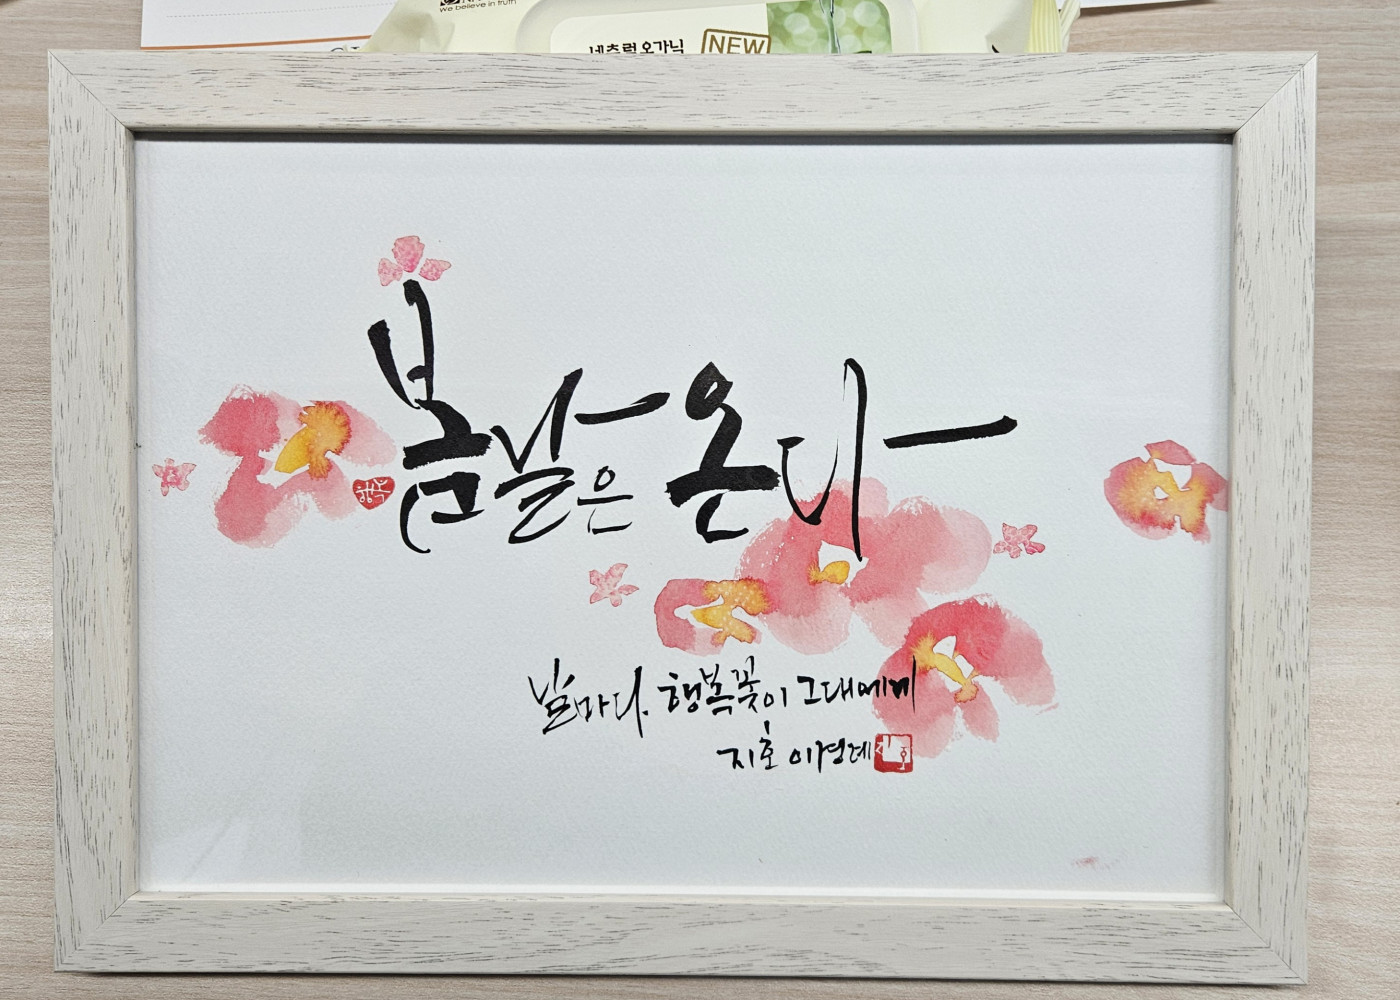 We believe in truth
네츄럴오가닉
NEW
봄날은 온다
행복
날마다. 행복꽃이 그대에게
지호 이경례
지호